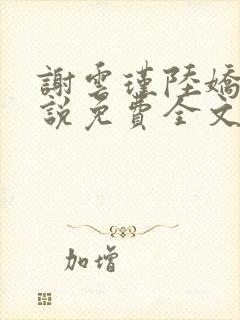 謝雲瑾陸嬌
說免費全文
加增